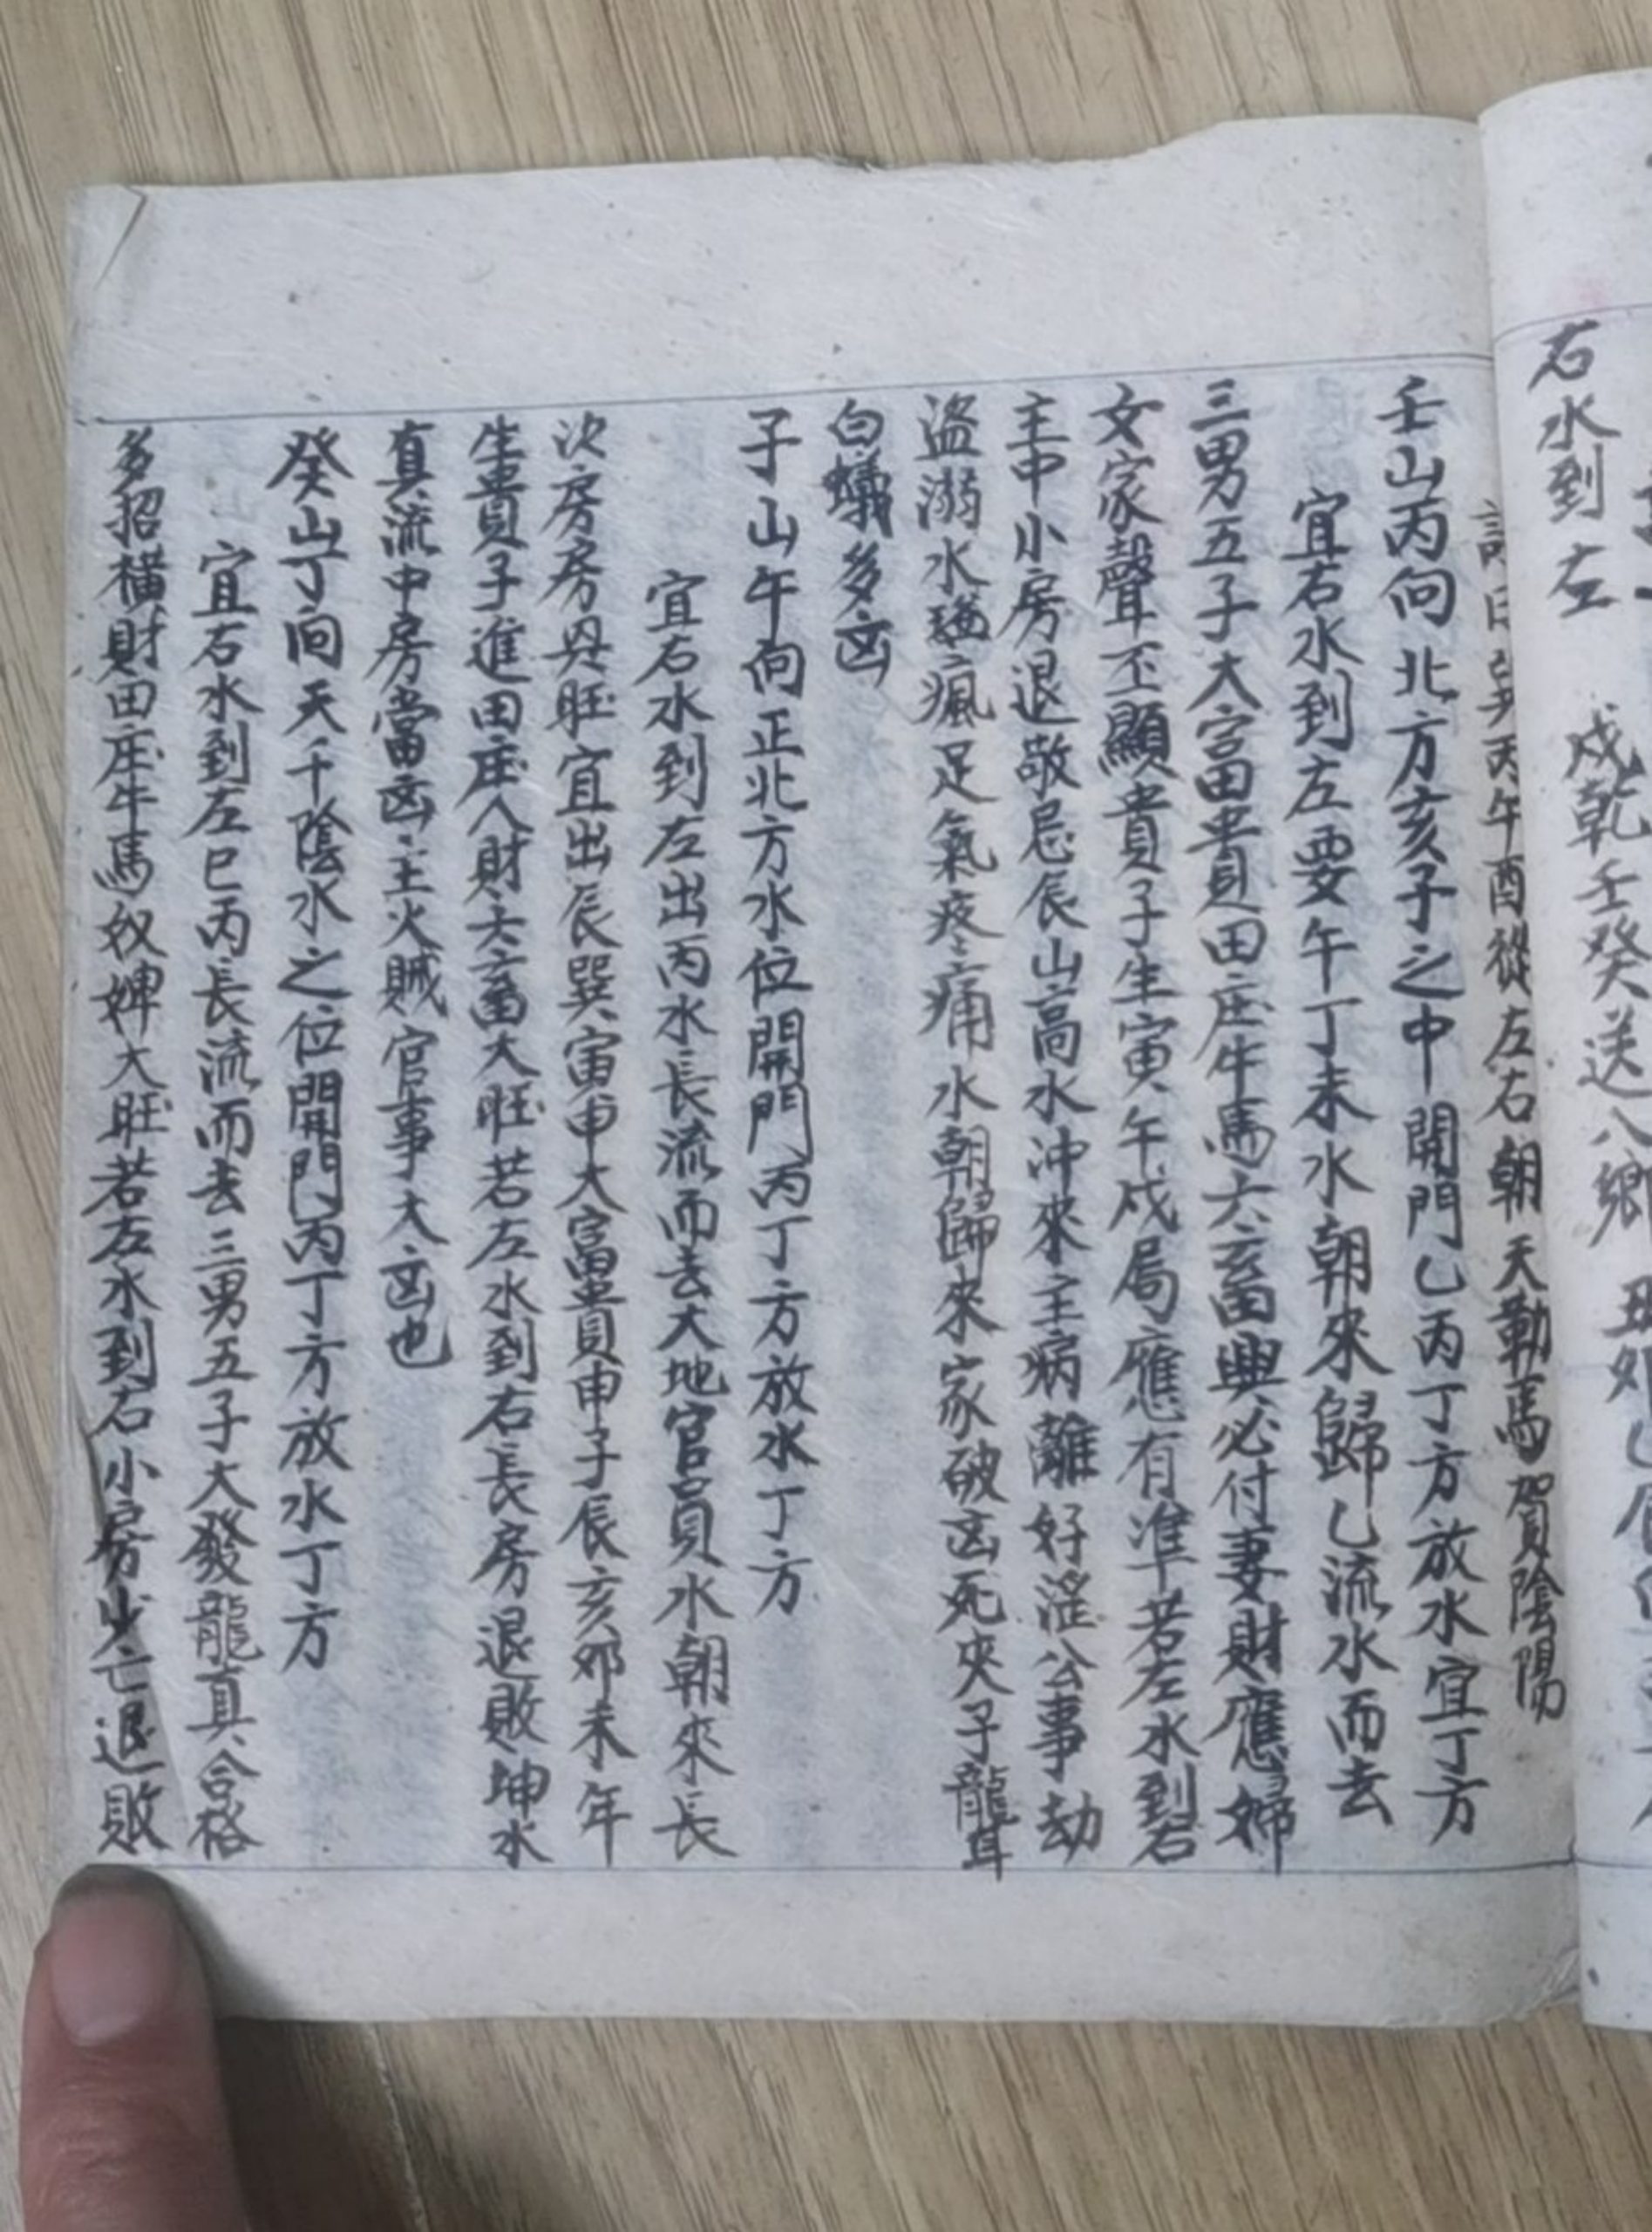 右水到左　戍乾壬癸送八鄉
詩曰巽丙午酉從左右朝天勒馬賀陰陽
壬山丙向北方亥子之中開門乚丙丁方放水宜丁方
宜右水到左要午丁未水朝來歸乚流水而去
三男五子大富貴田庄牛馬六畜興必付妻財應婦
女家聲丕顯貴子生寅午戍局應有準若左水到右
主中小房退敬忌辰山高水沖來主病離好淫公事劫
盜溺水瘋足氣疼痛水朝歸來家破凶死夾子龍耳
白蟻多凶
子山午向正北方水位開門丙丁方放水丁方
宜右水到左出丙水長流而去大地官員水朝來長
次房房興旺宜出辰巽寅申大富貴申子辰亥卯未年
生貴子進田庄人財六畜大旺若左水到右長房退敗坤水
真流中房當凶主火賊官事大凶也
癸山丁向天千陰水之位開門丙丁方放水丁方
宜右水到左巳丙長流而去三男五子大發龍真合格
多招橫財田庄牛馬奴婢大旺若左水到右小房少亡退敗